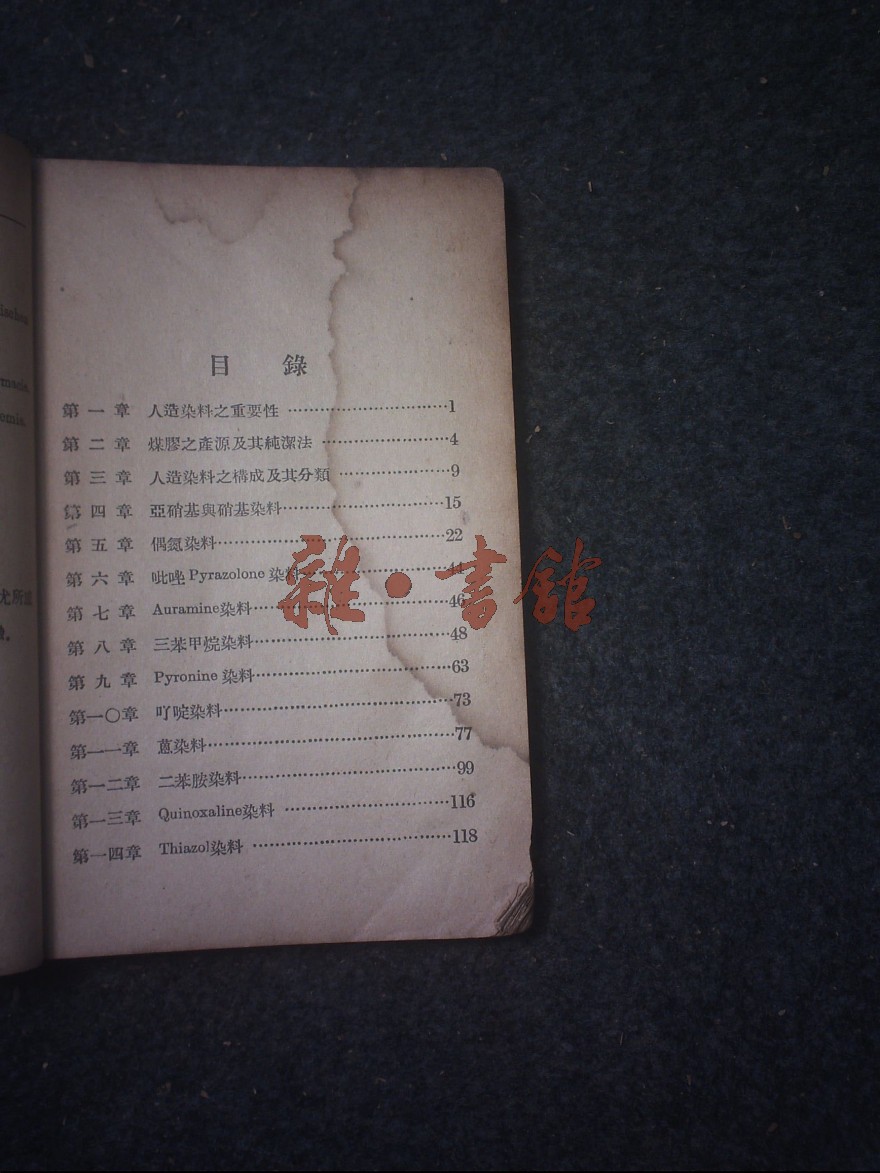 dschau
rmacie.
emie.
尤所感
目錄
第一章 人造染料之重要性 …………………………1
第二章 煤膠之產源及其純潔法 ……………………4
第三章 人造染料之構成及其分類 …………………9
第四章 亞硝基與硝基染料…………………………15
第五章 偶氮染料……………………………………22
第六章 吡唑Pyrazolone染料………………………44
第七章 Auramine染料………………………………46
第八章 三苯甲烷染料………………………………48
第九章 Pyronine 染料………………………………63
第一〇章 吖啶染料……………………………………73
第一一章 蒽染料………………………………………77
第一二章 二苯胺染料…………………………………99
第一三章 Quinoxaline染料 …………………………116
第一四章 Thiazol染料 ………………………………118
雜·書館